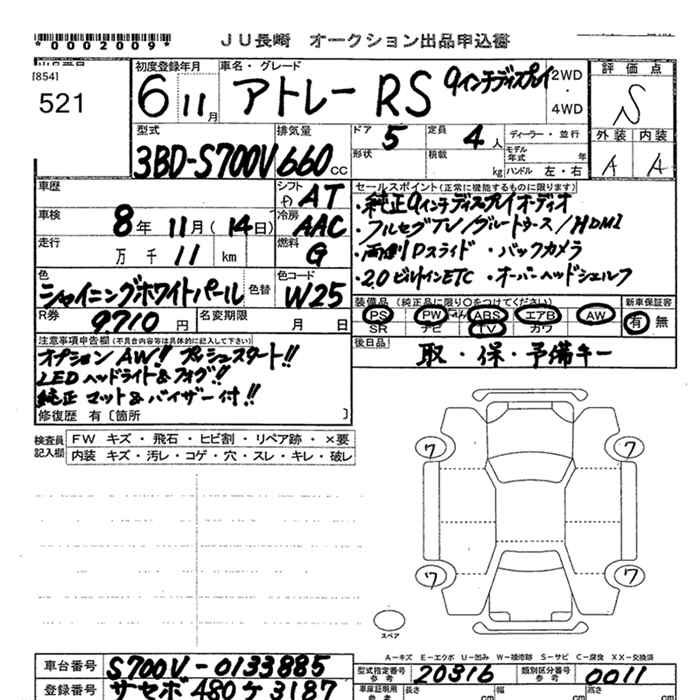 *0002009* JU長崎 オークション出品申込書
[854] 出品番号
521
初度登録年月 6 11月
車名・グレード アトレー RS 9インチディスプレイ
2WD・4WD
評価点 S
外装 A 内装 A
型式 3BD-S700V
排気量 660cc
ドア 5 定員 4人
形状 積載 kg
ディーラー・並行
モデル年式 年
ハンドル 左・右
車歴
シフト AT
車検 8年 11月(14日)
冷房 AAC
走行 万 千 11 km
燃料 G
セールスポイント(正常に機能するものに限ります)
・純正9インチディスプレイオーディオ
・フルセグTV/ブルートゥース/HDMI
・両側Pスライド ・バックカメラ
・2.0ビルトインETC ・オーバーヘッドシェルフ
色 シャイニングホワイトパール 色替
色コード W25
R券 9710円
名変期限 月 日
装備品(純正品に限り○をつけてください) 新車保証書
PS PW ABS エアB AW 有 無
SR ナビ TV カワ
後日品 取・保・予備キー
注意事項申告欄(不具合内容等は具体的に記入して下さい)
オプションAW!! プッシュスタート!!
LEDヘッドライト&フォグ!!
純正マット&バイザー付!!
修復歴 有〔箇所 〕
検査員記入欄
FW キズ・飛石・ヒビ割・リペア跡・×要
内装 キズ・汚レ・コゲ・穴・スレ・キレ・破レ
ワ ワ
ワ ワ
スペア
A-キズ E-エクボ U-凹み W-補修跡 S-サビ C-腐食 XX-交換済
車台番号 S700V-0133885
型式指定番号 参考 20316
類別区分番号 参考 0011
登録番号 サセボ480ケ3187
車庫証明用 参考 長さ cm 幅 cm 高さ cm